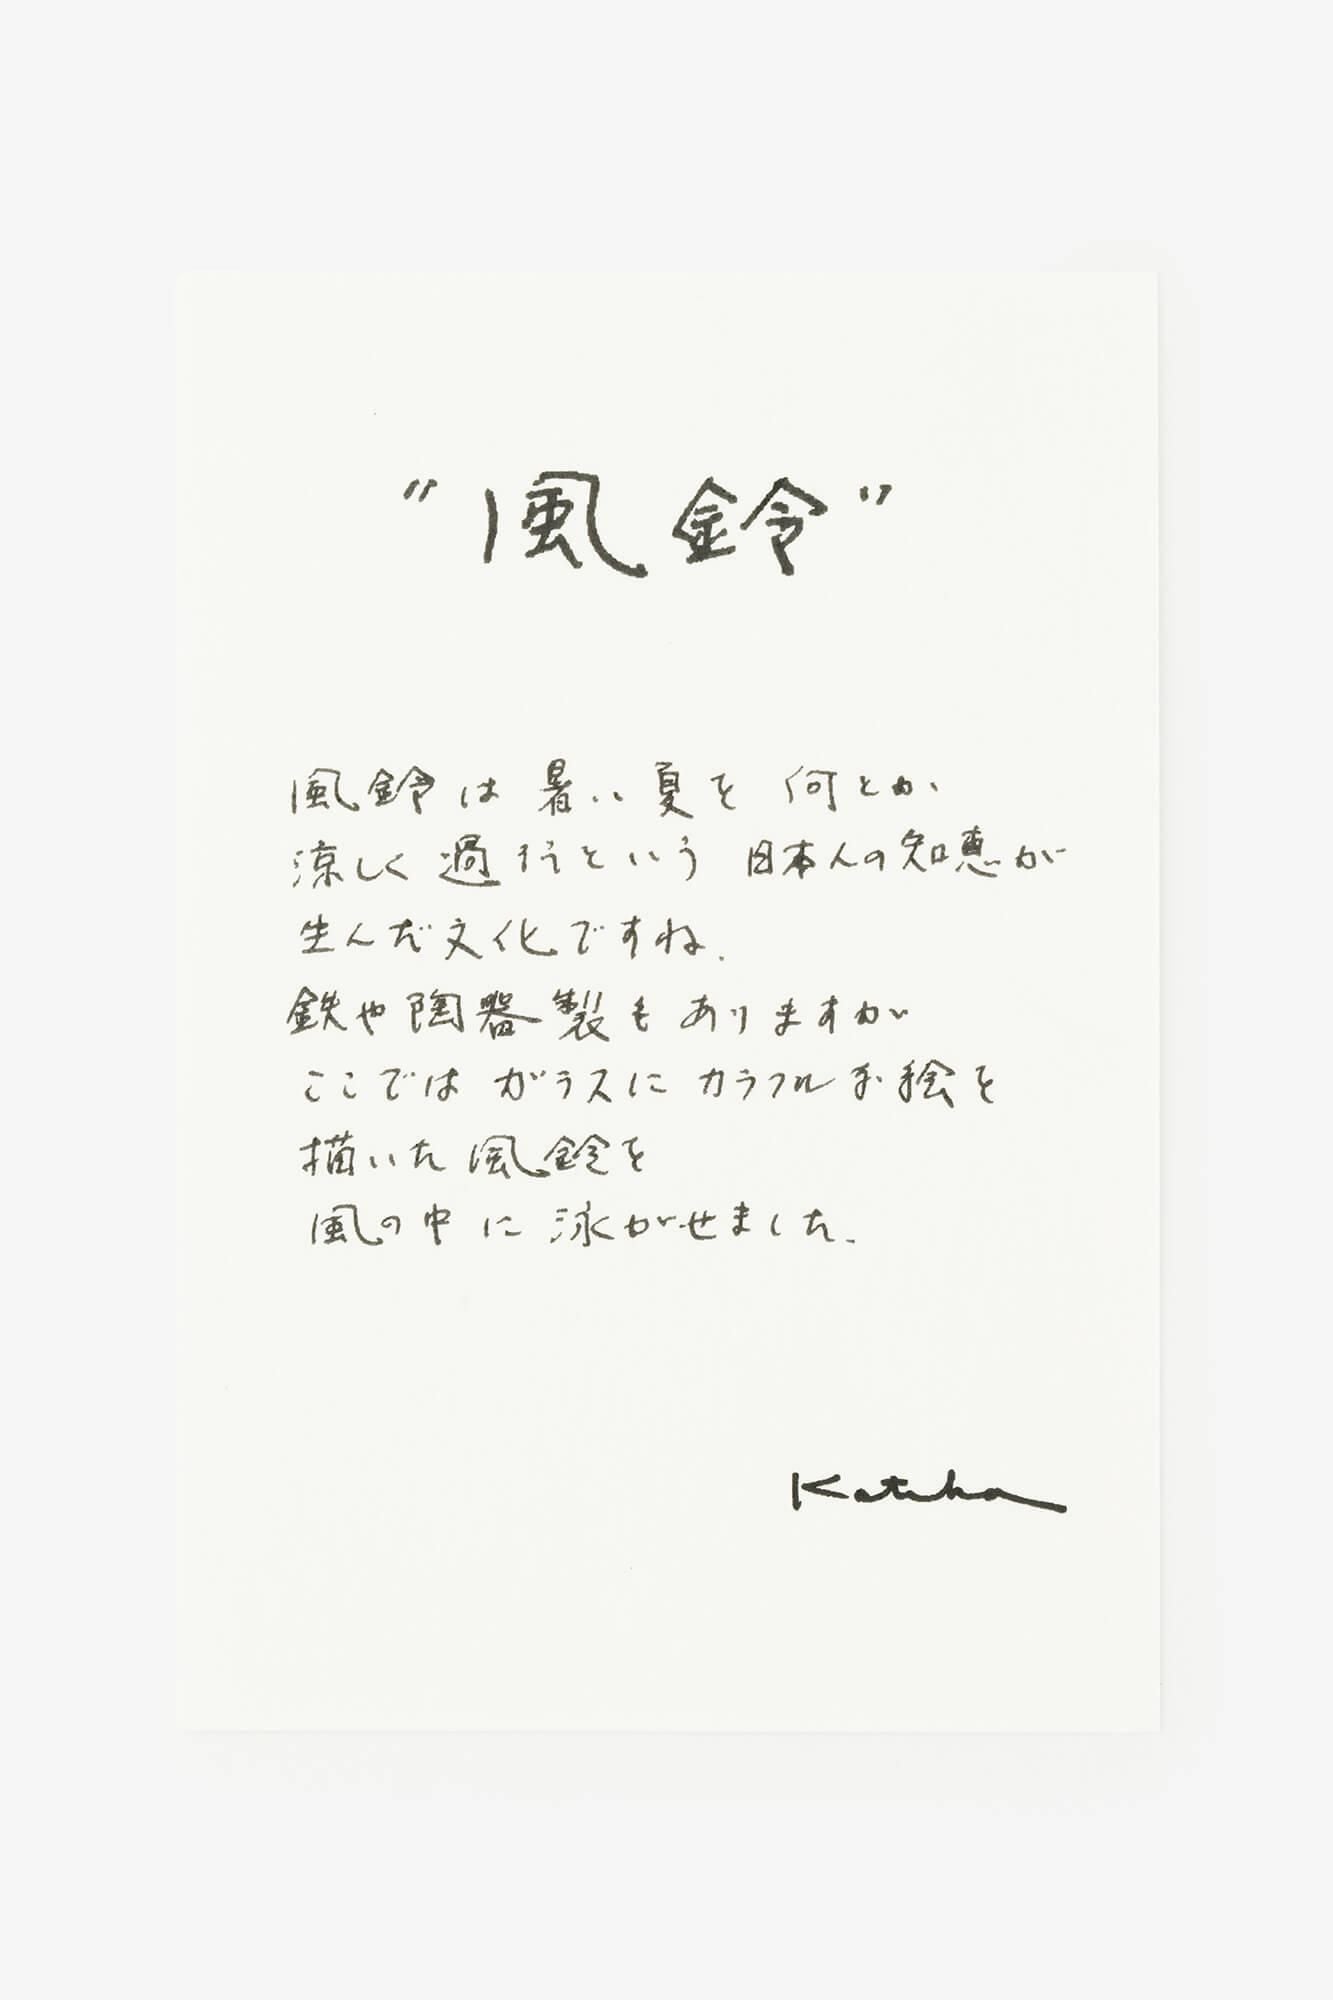 "風鈴"
風鈴は暑い夏を何とか
涼しく過そうという日本人の知恵が
生んだ文化ですね.
鉄や陶器製もありますが
ここではガラスにカラフルな絵を
描いた風鈴を
風の中に泳がせました.